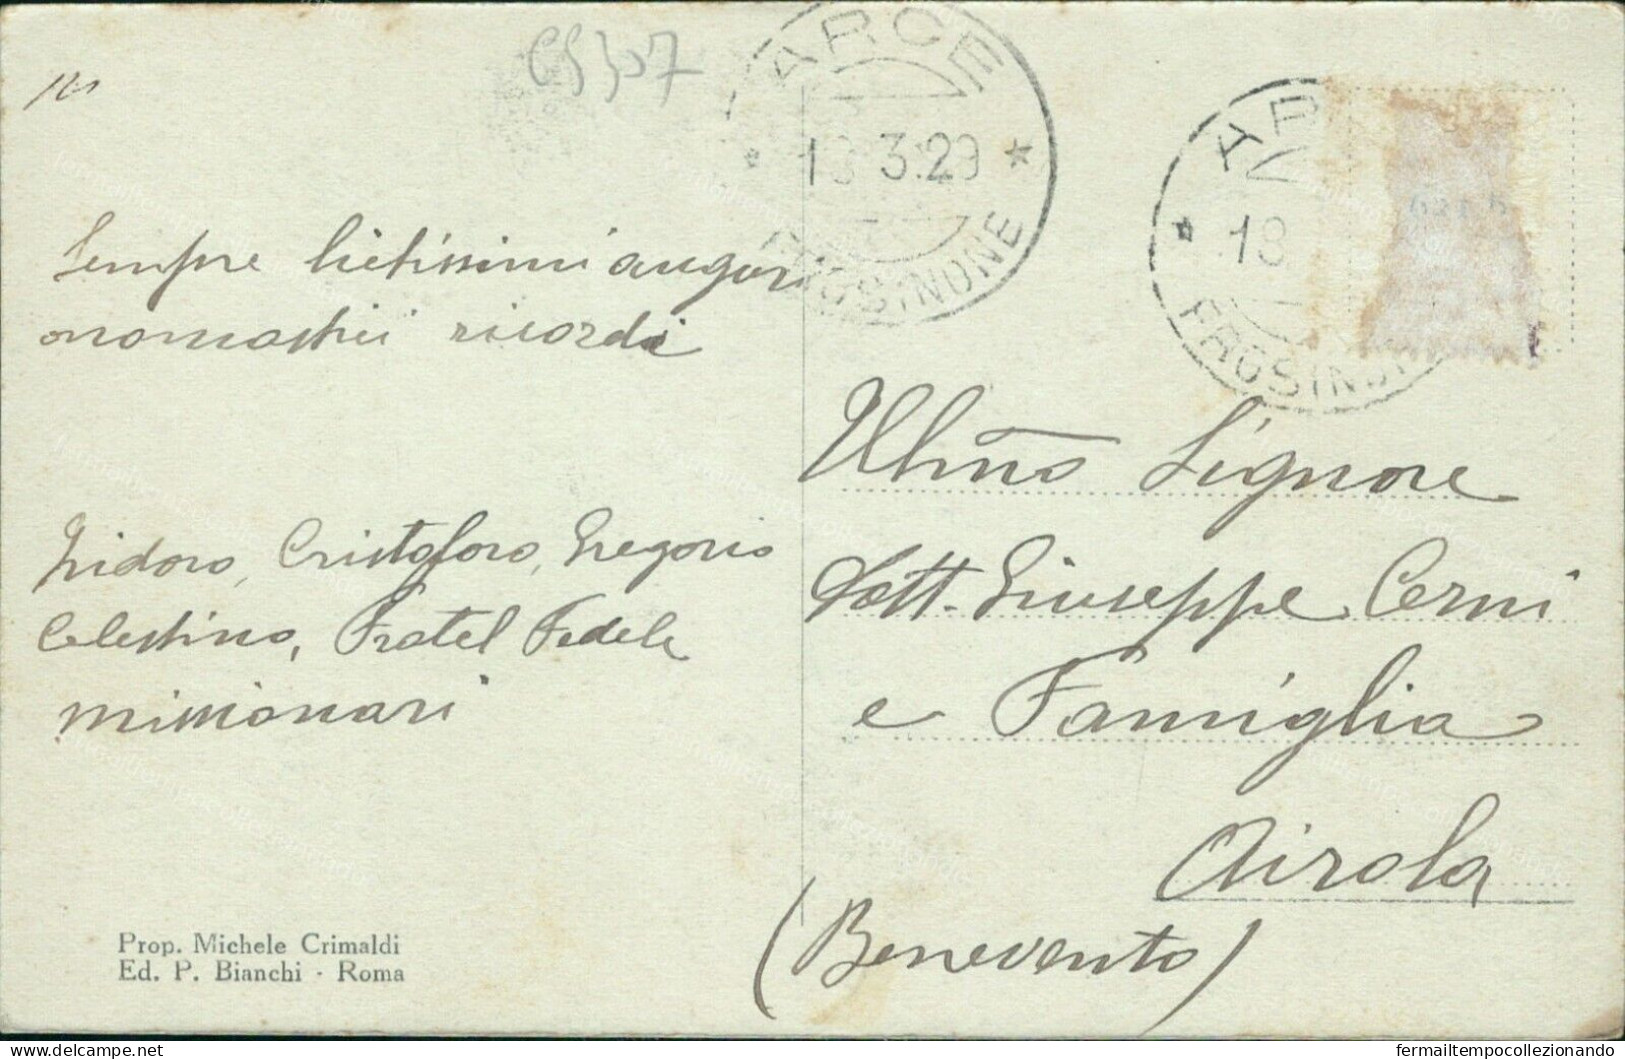 CS307
ARCE
18.3.29
FROSINONE
18
FROSINON
Sempre lietissimi auguri
onomastici ricordi
Isidoro, Cristoforo, Gregorio
Celestino, Fratel Fedele
missionari
Prop. Michele Crimaldi
Ed. P. Bianchi - Roma
Ill.mo Signore
Dott. Giuseppe Cerni
e Famiglia
Airola
(Benevento)
delcampe.net
fermailtempocollezionando